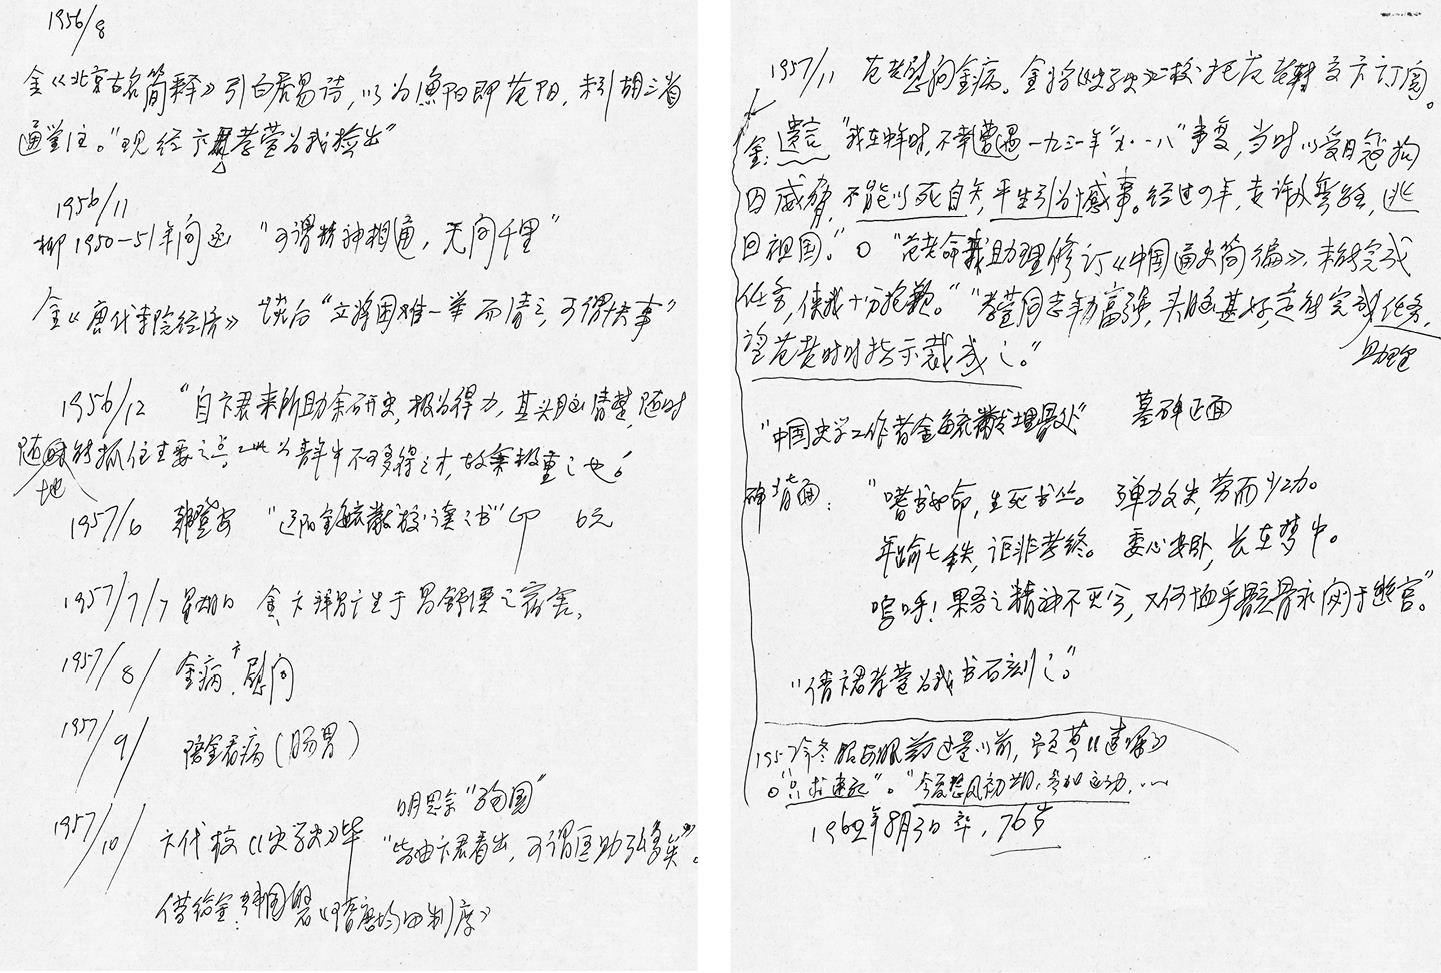 1956/8
金《北京古名简释》引白居易诗,以为渔阳即范阳,未引胡三省
通鉴注。"现经卞孝萱为我捡出"
1956/11
柳1950-51年间函 "可谓精神相通,无间千里"
金《唐代寺院经济》读后"立将困难一举而清之,可谓快事"
1956/12 "自卞君来所助余研史,极为得力,其头脑清楚,随时
随地能抓住主要之点,此为青年中不可多得之才,故余极重之也。"
1957/6 韩登安 "辽阳金毓黻校读之书"印 6元
1957/7/7 星期日 金、卞拜 于 之宿舍。
1957/8/ 金病,卞慰问
1957/9/ 陪金看病(肠胃)
明思宗"殉国"
1957/10/ 卞代校《史学史》毕 "皆由卞君看出,可谓匡助弘多矣"。
借给金:韩国磐《隋唐均田制度》
1957/11 范老慰问金病。金将《史学史》二校 交卞订阅。
金:遗言 "我在中年时,不幸遭遇一九三一年"九·一八"事变,当时以受日寇拘
囚威胁,不能以死自矢,平生引为憾事。经过 年,走 ,逃
回祖国。" "范老命我助理修订《中国通史简编》,未能完成
任务,使我十分抱歉。" "孝萱同志年力富强,头脑甚好,定能完成任务,
助理
望范老时时指示裁成之。"
"中国史学工作者金毓黻埋骨处" 墓碑正面
碑背面: "嗜书如命,生死书丛。 弹力文史,劳而少功。
年逾七秩,讵非考终。 委心安卧,长在梦中。
呜呼!果吾之精神不灭兮,又何恤乎髋骨永閟于幽宫。"
"倩卞君孝萱为我书石刻之。"
1957年冬 服 药过量以前, 草《遗嘱》
"只求速死"。"今夏整风初期,参加运动,……
1962年8月3日卒,76岁